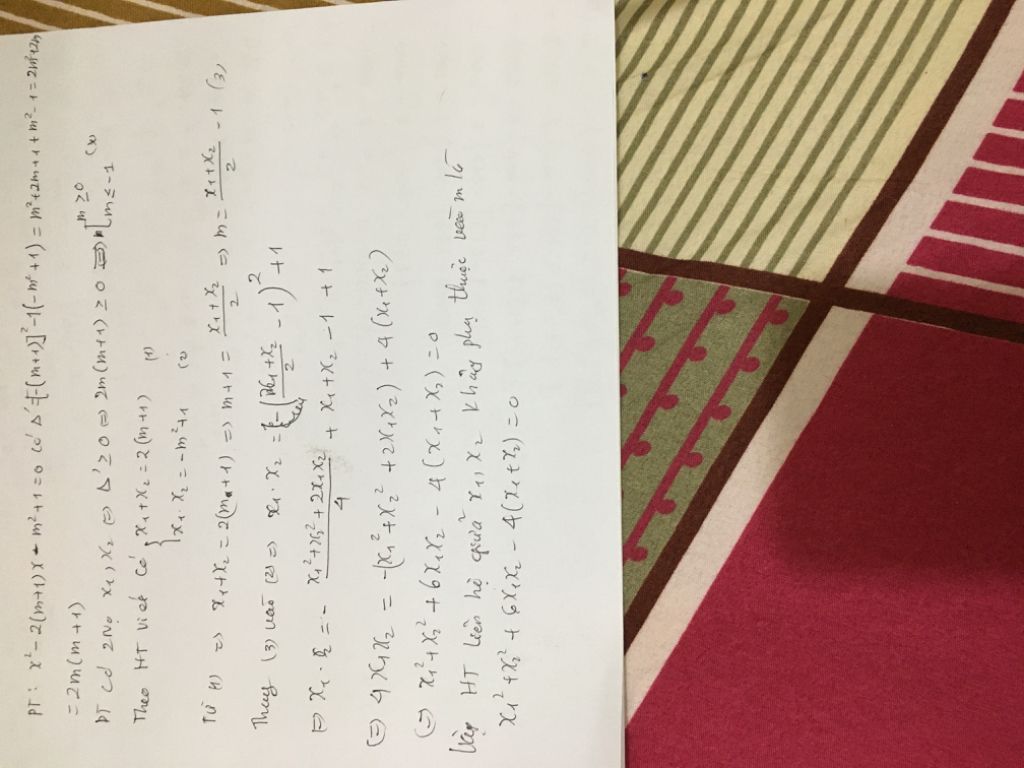 PT: x² - 2(m+1)x - m² + 1 = 0 có Δ' = [-(m+1)]² - 1(-m²+1) = m² + 2m + 1 + m² - 1 = 2m² + 2m
= 2m(m+1)
PT có 2 No x₁, x₂ ⇔ Δ' ≥ 0 ⇔ 2m(m+1) ≥ 0 ⇔ [m ≥ 0 m ≤ -1 (*)
Theo HT Viét có { x₁ + x₂ = 2(m+1) (1)
x₁ . x₂ = -m² + 1 (2)
Từ (1) => x₁ + x₂ = 2(m+1) => m+1 = (x₁+x₂)/2 => m = (x₁+x₂)/2 - 1 (3)
Thay (3) vào (2) => x₁ . x₂ = -((x₁+x₂)/2 - 1)² + 1
⇔ x₁ . x₂ = - (x₁² + x₂² + 2x₁x₂)/4 + x₁ + x₂ - 1 + 1
⇔ 4x₁x₂ = -(x₁² + x₂² + 2x₁x₂) + 4(x₁+x₂)
⇔ x₁² + x₂² + 6x₁x₂ - 4(x₁+x₂) = 0
Vậy HT liên hệ giữa x₁, x₂ không phụ thuộc vào m là
x₁² + x₂² + 6x₁x₂ - 4(x₁+x₂) = 0